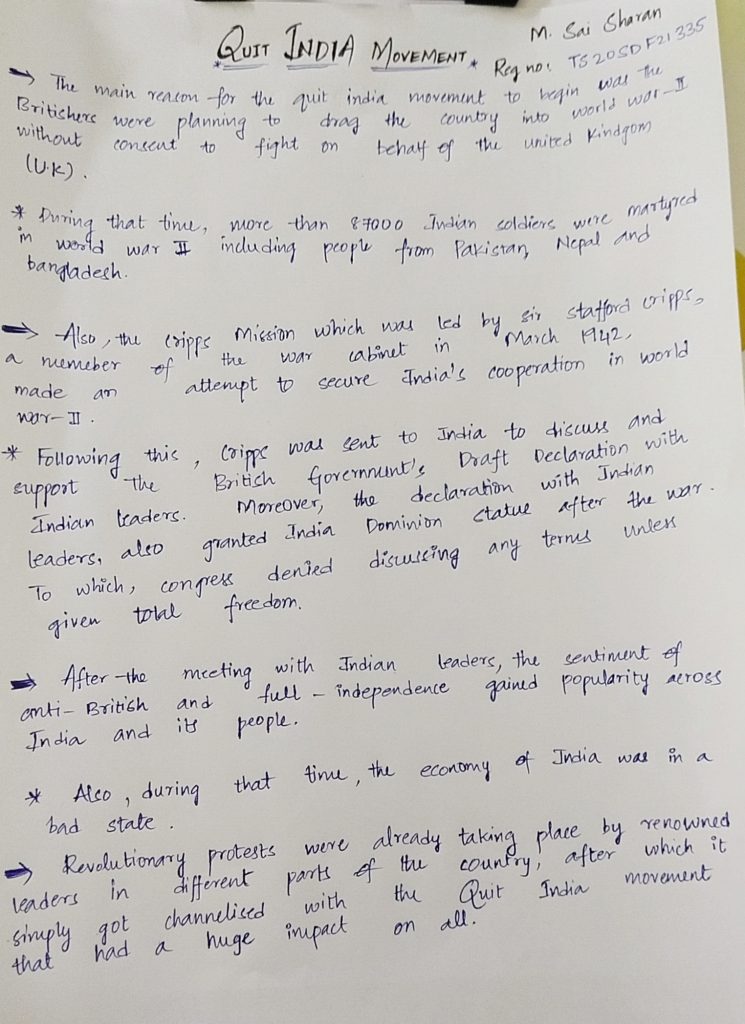 QUIT INDIA MOVEMENT
M. Sai Sharan
Reg no: TS20SDF21335
→ The main reason for the quit india movement to begin was the
Britishers were planning to drag the country into world war-II
without consent to fight on behalf of the united Kindgom
(U.K).
* During that time, more than 87000 Indian soldiers were martyred
in world war II including people from Pakistan, Nepal and
bangladesh.
→ Also, the Cripps Mission which was led by sir stafford cripps,
a memeber of the war cabinet in March 1942,
made an attempt to secure India's cooperation in world
war-II.
* Following this, Cripps was sent to India to discuss and
support the British Government's Draft Declaration with
Indian leaders. Moreover, the declaration with Indian
leaders, also granted India Dominion status after the war.
To which, congress denied discussing any terms unless
given total freedom.
→ After the meeting with Indian leaders, the sentiment of
anti-British and full-independence gained popularity across
India and its people.
* Also, during that time, the economy of India was in a
bad state.
→ Revolutionary protests were already taking place by renowned
leaders in different parts of the country, after which it
simply got channelised with the Quit India movement
that had a huge impact on all.